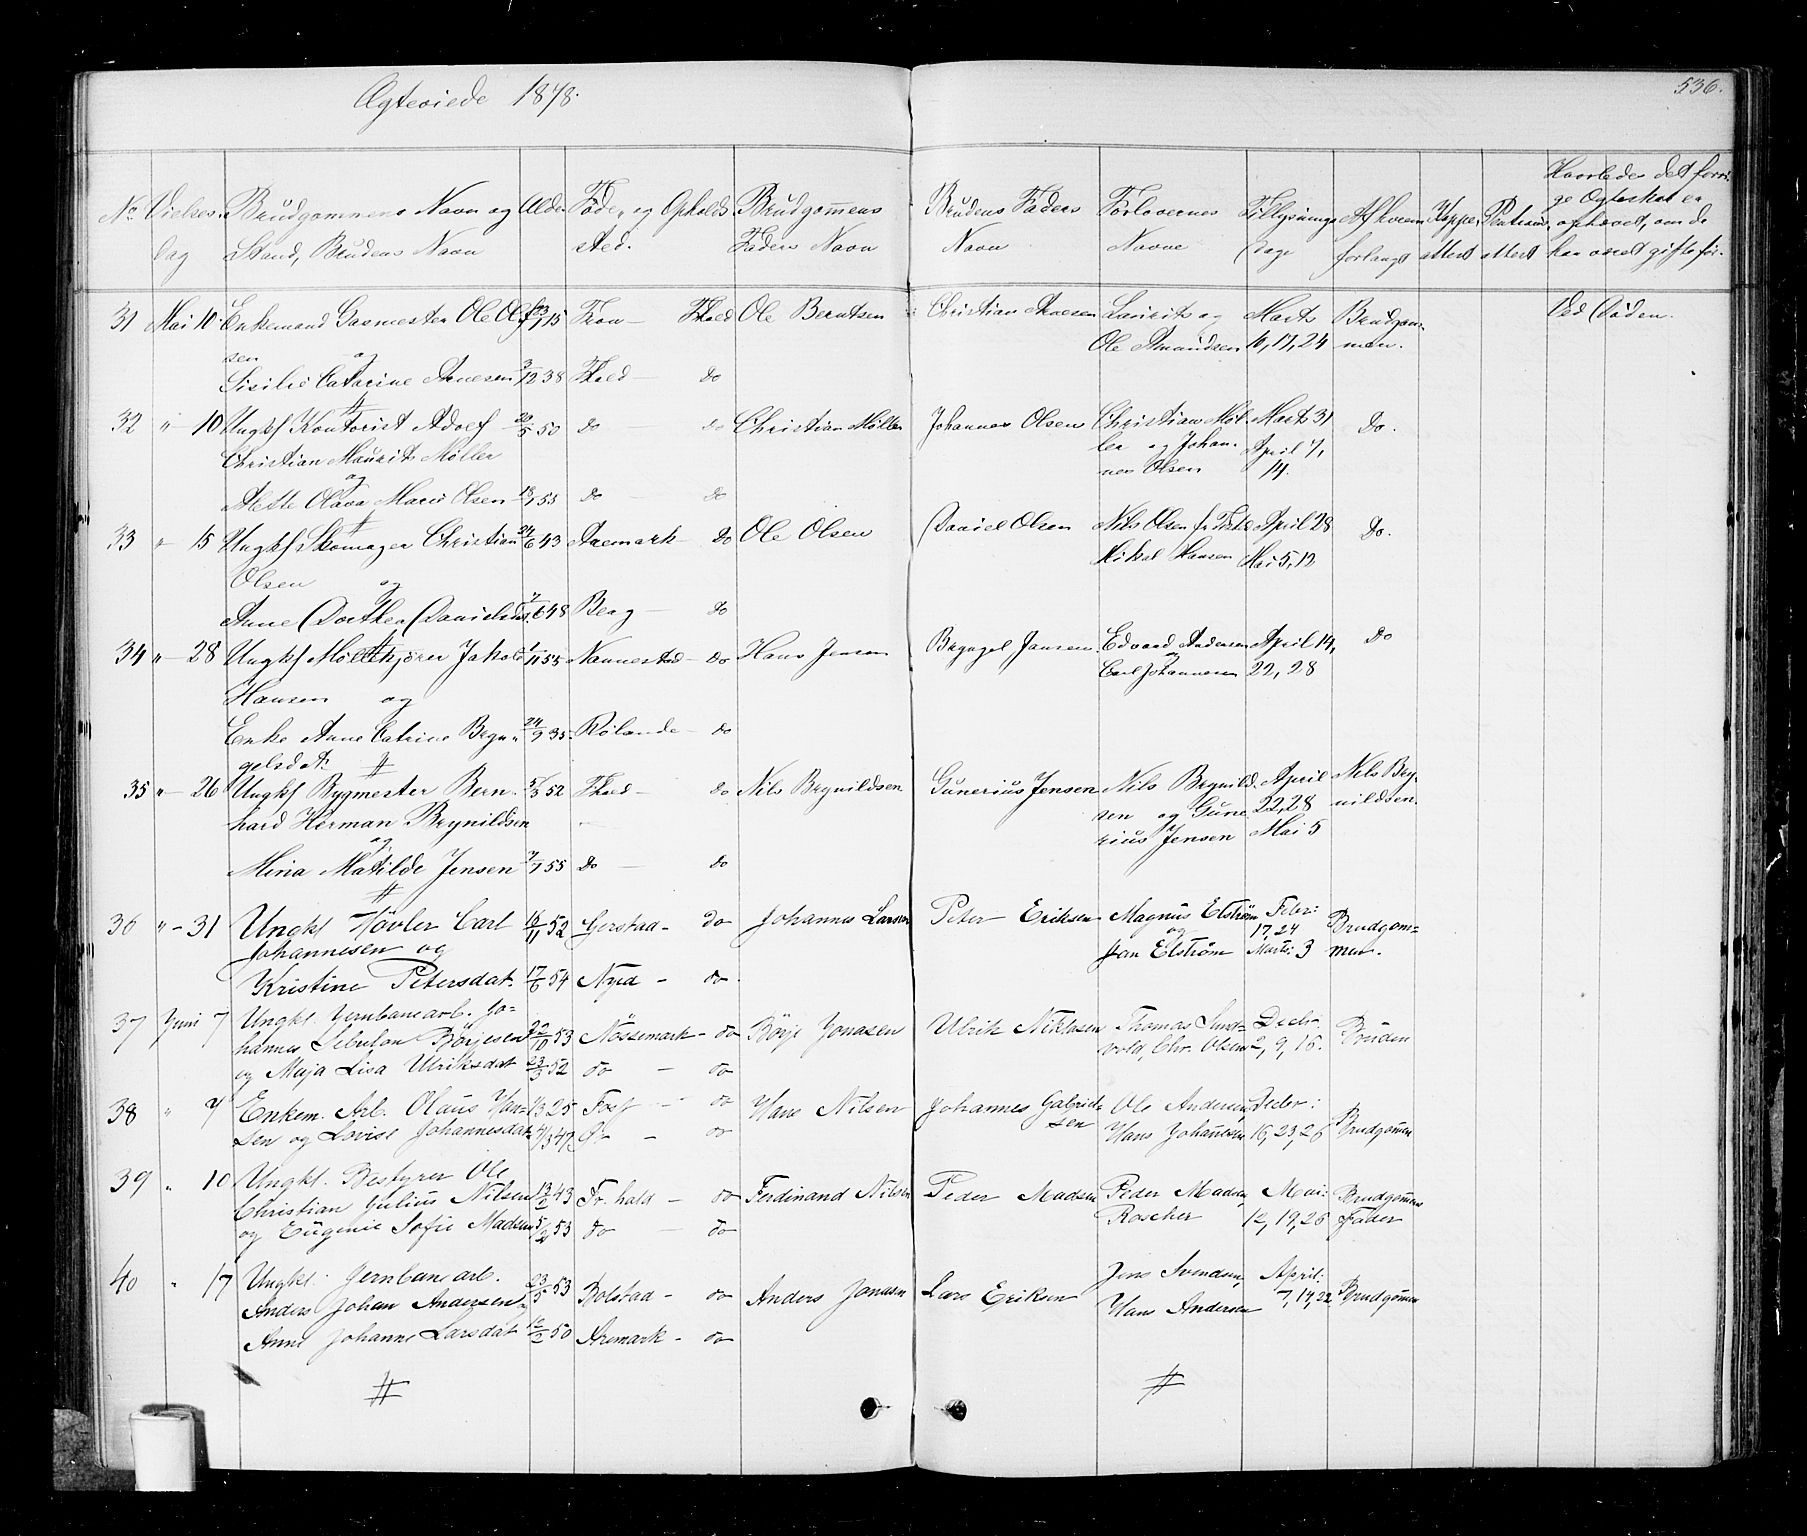 Ægteviede 1878.
536.
No Vielses- Dag
Brudgommens Navn og Stand, Brudens Navn
Alder
Føde- og Opholds- sted.
Brudgommens Faders Navn
Brudens Faders Navn
Forlovernes Navne
Tillysnings Dage
Afkveem forlangt
Koppe- attest
attest
Hvorledes det forri- ge Ægteskab er ophævet, om de har været gifte før.
31 Mai 10. Enkemand Gasmester Ole Ol- 15 Tron- Fhald Ole Berntsen Christian Arnesen Lauritz og Marts Brudgom- Ved Døden.
sen og Ole Amundsen 17, 24 men.
Sisilie Catarine Arnesen 3/12 38 Fhald - do
32 " - 10 Ungkl Kontorist Adolf 20/5 50 do do Christian Møller Johannes Olsen Christian Møl- Marts 31 do.
Christian Maurits Møller ler og Johan- April 7,
og nes Olsen 14.
Mette Olava Marie Olsen 55 do - do
33 " 15 Ungkl Skomager Christian 24/6 43 Aremark - do Ole Olsen Daniel Olsen Nils Olsen April 28 do.
Olsen og Mikal Hansen Mai 5, 12
Anne Dorthea Danielsdt. 7/6 48 Berg - do
34 " - 28 Ungkl Møllekjører Jakob 1/11 55 Nannestad - do Hans Jensen Bryngel Jansen Edvard Andersen April 14, do
Hansen og Carl Johannesen 22, 28
Enke Anne Catrine Bryn- 24/9 35 Rølande - do
gelsdat.
35 " - 26 Ungkl Bygmester Bern- 5/3 52 Fhald - do Nils Brynildsen Gunerius Jensen Nils Brynild- April Nils Bry-
hard Herman Brynildsen sen og Gune- 22, 28 nildsen.
og rius Jensen Mai 5
Mina Matilde Jensen 7/1 55 do - do
36 " - 31 Ungkl Høvler Carl 16/11 52 Gerstad - do Johannes Larsen Peter Eriksen Magnus Elström Febr: Brudgom-
Johannesen og og 17, 24 men.
Kristine Petersdat. 17/6 54 Nyed - do. Jan Elström Marts: 3
37 Juni 7 Ungkl. Jernbanearb. Jo-
hannes Sebulon Börjesen 22/10 53 Nössemark - do Börje Jonasen Ulrik Niklasen Thomas Sund- Decbr. Bruden
og Maja Lisa Ulriksdat 23/3 52 do - do vold, Chr. Olsen 2, 9, 16.
38 " 7 Enkem. Arb. Olaus Han- 1/3 25 Foss - do Hans Nilsen Johannes Gabriel- Ole Andersen, Brudgommen
sen og Lovise Johannesdat. 4/3 47 - do sen Hans Johannesen 16, 23, 26
39 " 10 Ungkl. Bestyrer Ole
Christian Julius Nilsen 13/2 43 Fr. hald - do Ferdinand Nilsen Peder Madsen Peder Madsen, Mai: Brudgommens
og Eugenie Sofie Madsen 5/2 53 do - do Roscher 12, 19, 26 Fader
40 " 17 Ungkl. Jernbanearb. 23/5 53 Bolstad - do Anders Jonasen Lars Eriksen Jens Svendsen, April: Brudgommen
Anders Johan Andersen og Hans Andersen 7, 14, 22
Anne Johanne Larsdat 12/2 50 Aremark - do